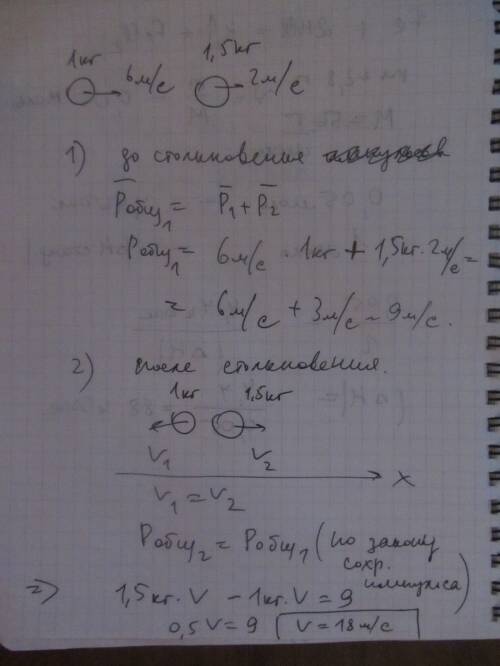 1кг 1,5кг
6м/с 2м/с
1) до столкновения
P̅общ₁ = P̅₁ + P̅₂
Pобщ₁ = 6м/с 1кг + 1,5кг·2м/с =
= 6м/с + 3м/с = 9м/с.
2) после столкновения.
1кг 1,5кг
V₁ V₂
X
V₁ = V₂
Pобщ₂ = Pобщ₁ (по закону
сохр.
импульса)
=> 1,5кг·V - 1кг·V = 9
0,5V = 9 V = 18м/с